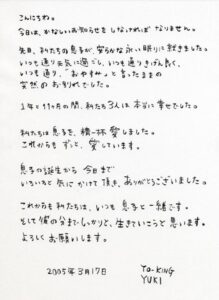 こんにちわ。
今日は、かなしいお知らせを しなければ なりません。
先日、私たちの息子が、安らかな永い眠りに就きました。
いつも通り元気に過ごし、いつも通りきげん良く、
いつも通り、"おやすみ"と言ったままの
突然の お別れでした。
1年と11ヶ月の間、私たち3人は 本当に幸せでした。
私たちは 息子を、精一杯 愛しました。
これからも ずっと、愛しています。
息子の誕生から 今日まで
いろいろと 気に かけて 頂き、ありがとうございました。
これからも 私たちは、いつも 息子と 一緒です。
そして 彼の分まで しっかりと、生きていこうと 思います。
よろしく お願いします。
2005年3月17日
YO-KING
YUKI